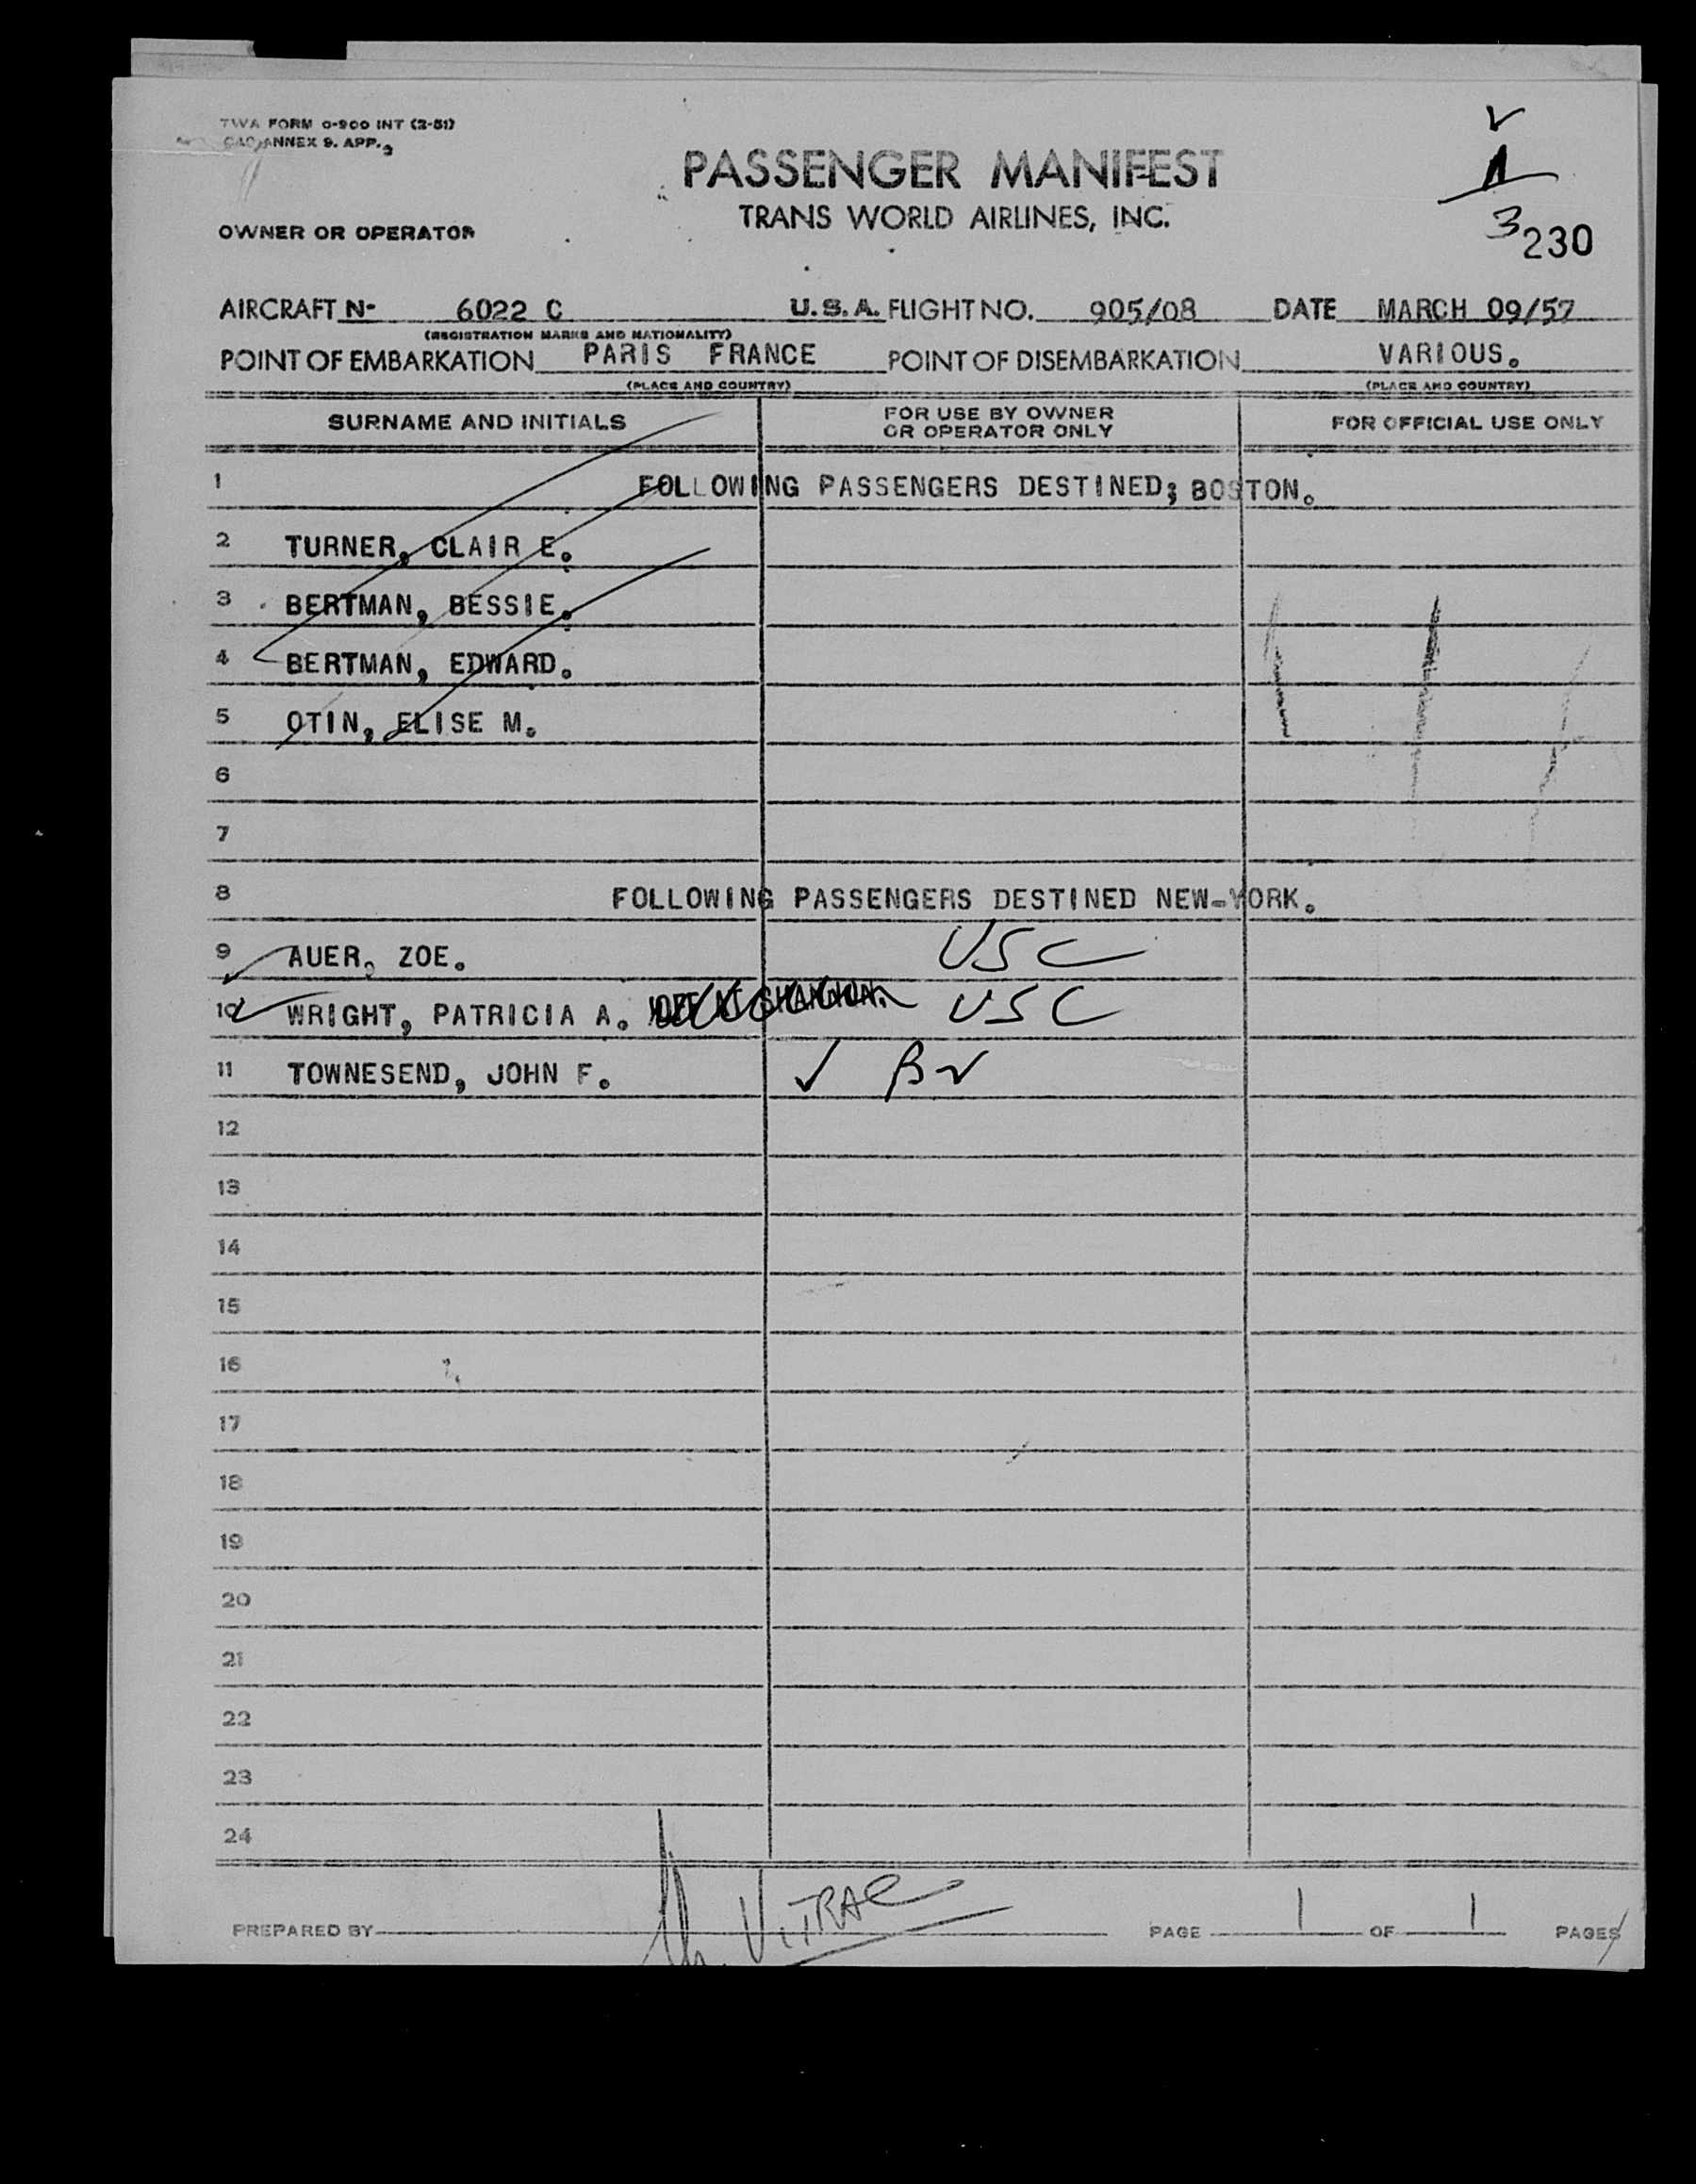 TWA FORM 0-900 INT (2-51)
ICAO ANNEX 9. APP. 3
PASSENGER MANIFEST
TRANS WORLD AIRLINES, INC.
OWNER OR OPERATOR
3
230
AIRCRAFT N- 6022 C U.S.A. FLIGHT NO. 905/08 DATE MARCH 09/57
(REGISTRATION MARKS AND NATIONALITY)
POINT OF EMBARKATION PARIS FRANCE POINT OF DISEMBARKATION VARIOUS.
(PLACE AND COUNTRY) (PLACE AND COUNTRY)
SURNAME AND INITIALS FOR USE BY OWNER OR OPERATOR ONLY FOR OFFICIAL USE ONLY
1 FOLLOWING PASSENGERS DESTINED; BOSTON.
2 TURNER, CLAIR E.
3 BERTMAN, BESSIE.
4 BERTMAN, EDWARD.
5 OTIN, ELISE M.
6
7
8 FOLLOWING PASSENGERS DESTINED NEW-YORK.
9 AUER, ZOE. USC
10 WRIGHT, PATRICIA A. USC
11 TOWNESEND, JOHN F. ✓
12
13
14
15
16
17
18
19
20
21
22
23
24
PREPARED BY VITRAC PAGE 1 OF 1 PAGES